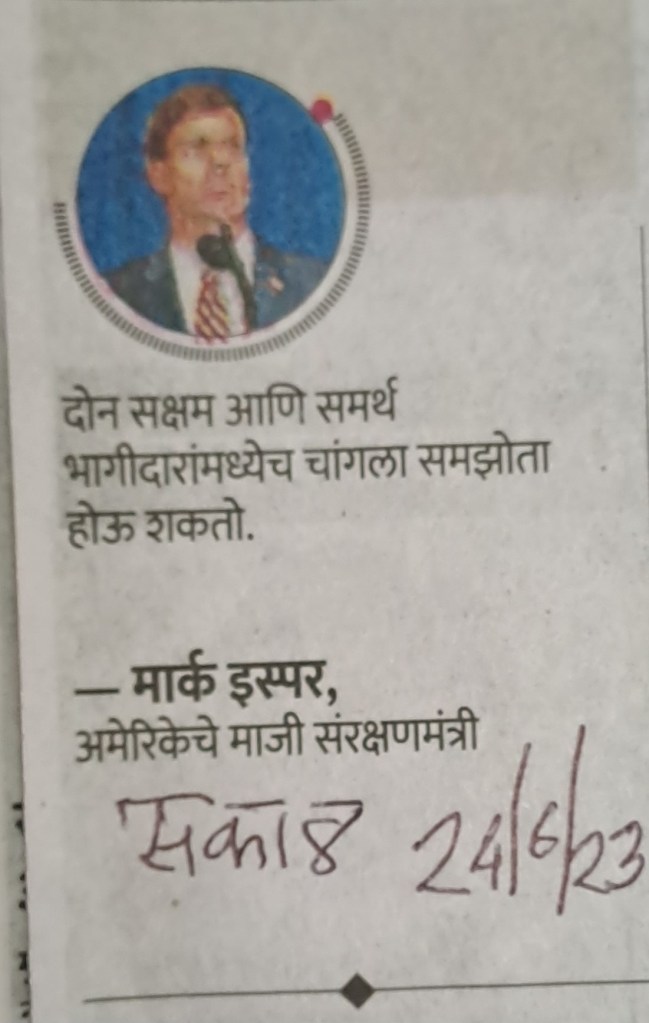 दोन सक्षम आणि समर्थ
भागीदारांमध्येच चांगला समझोता
होऊ शकतो.
— मार्क इस्पर,
अमेरिकेचे माजी संरक्षणमंत्री
सकाळ 24/6/23